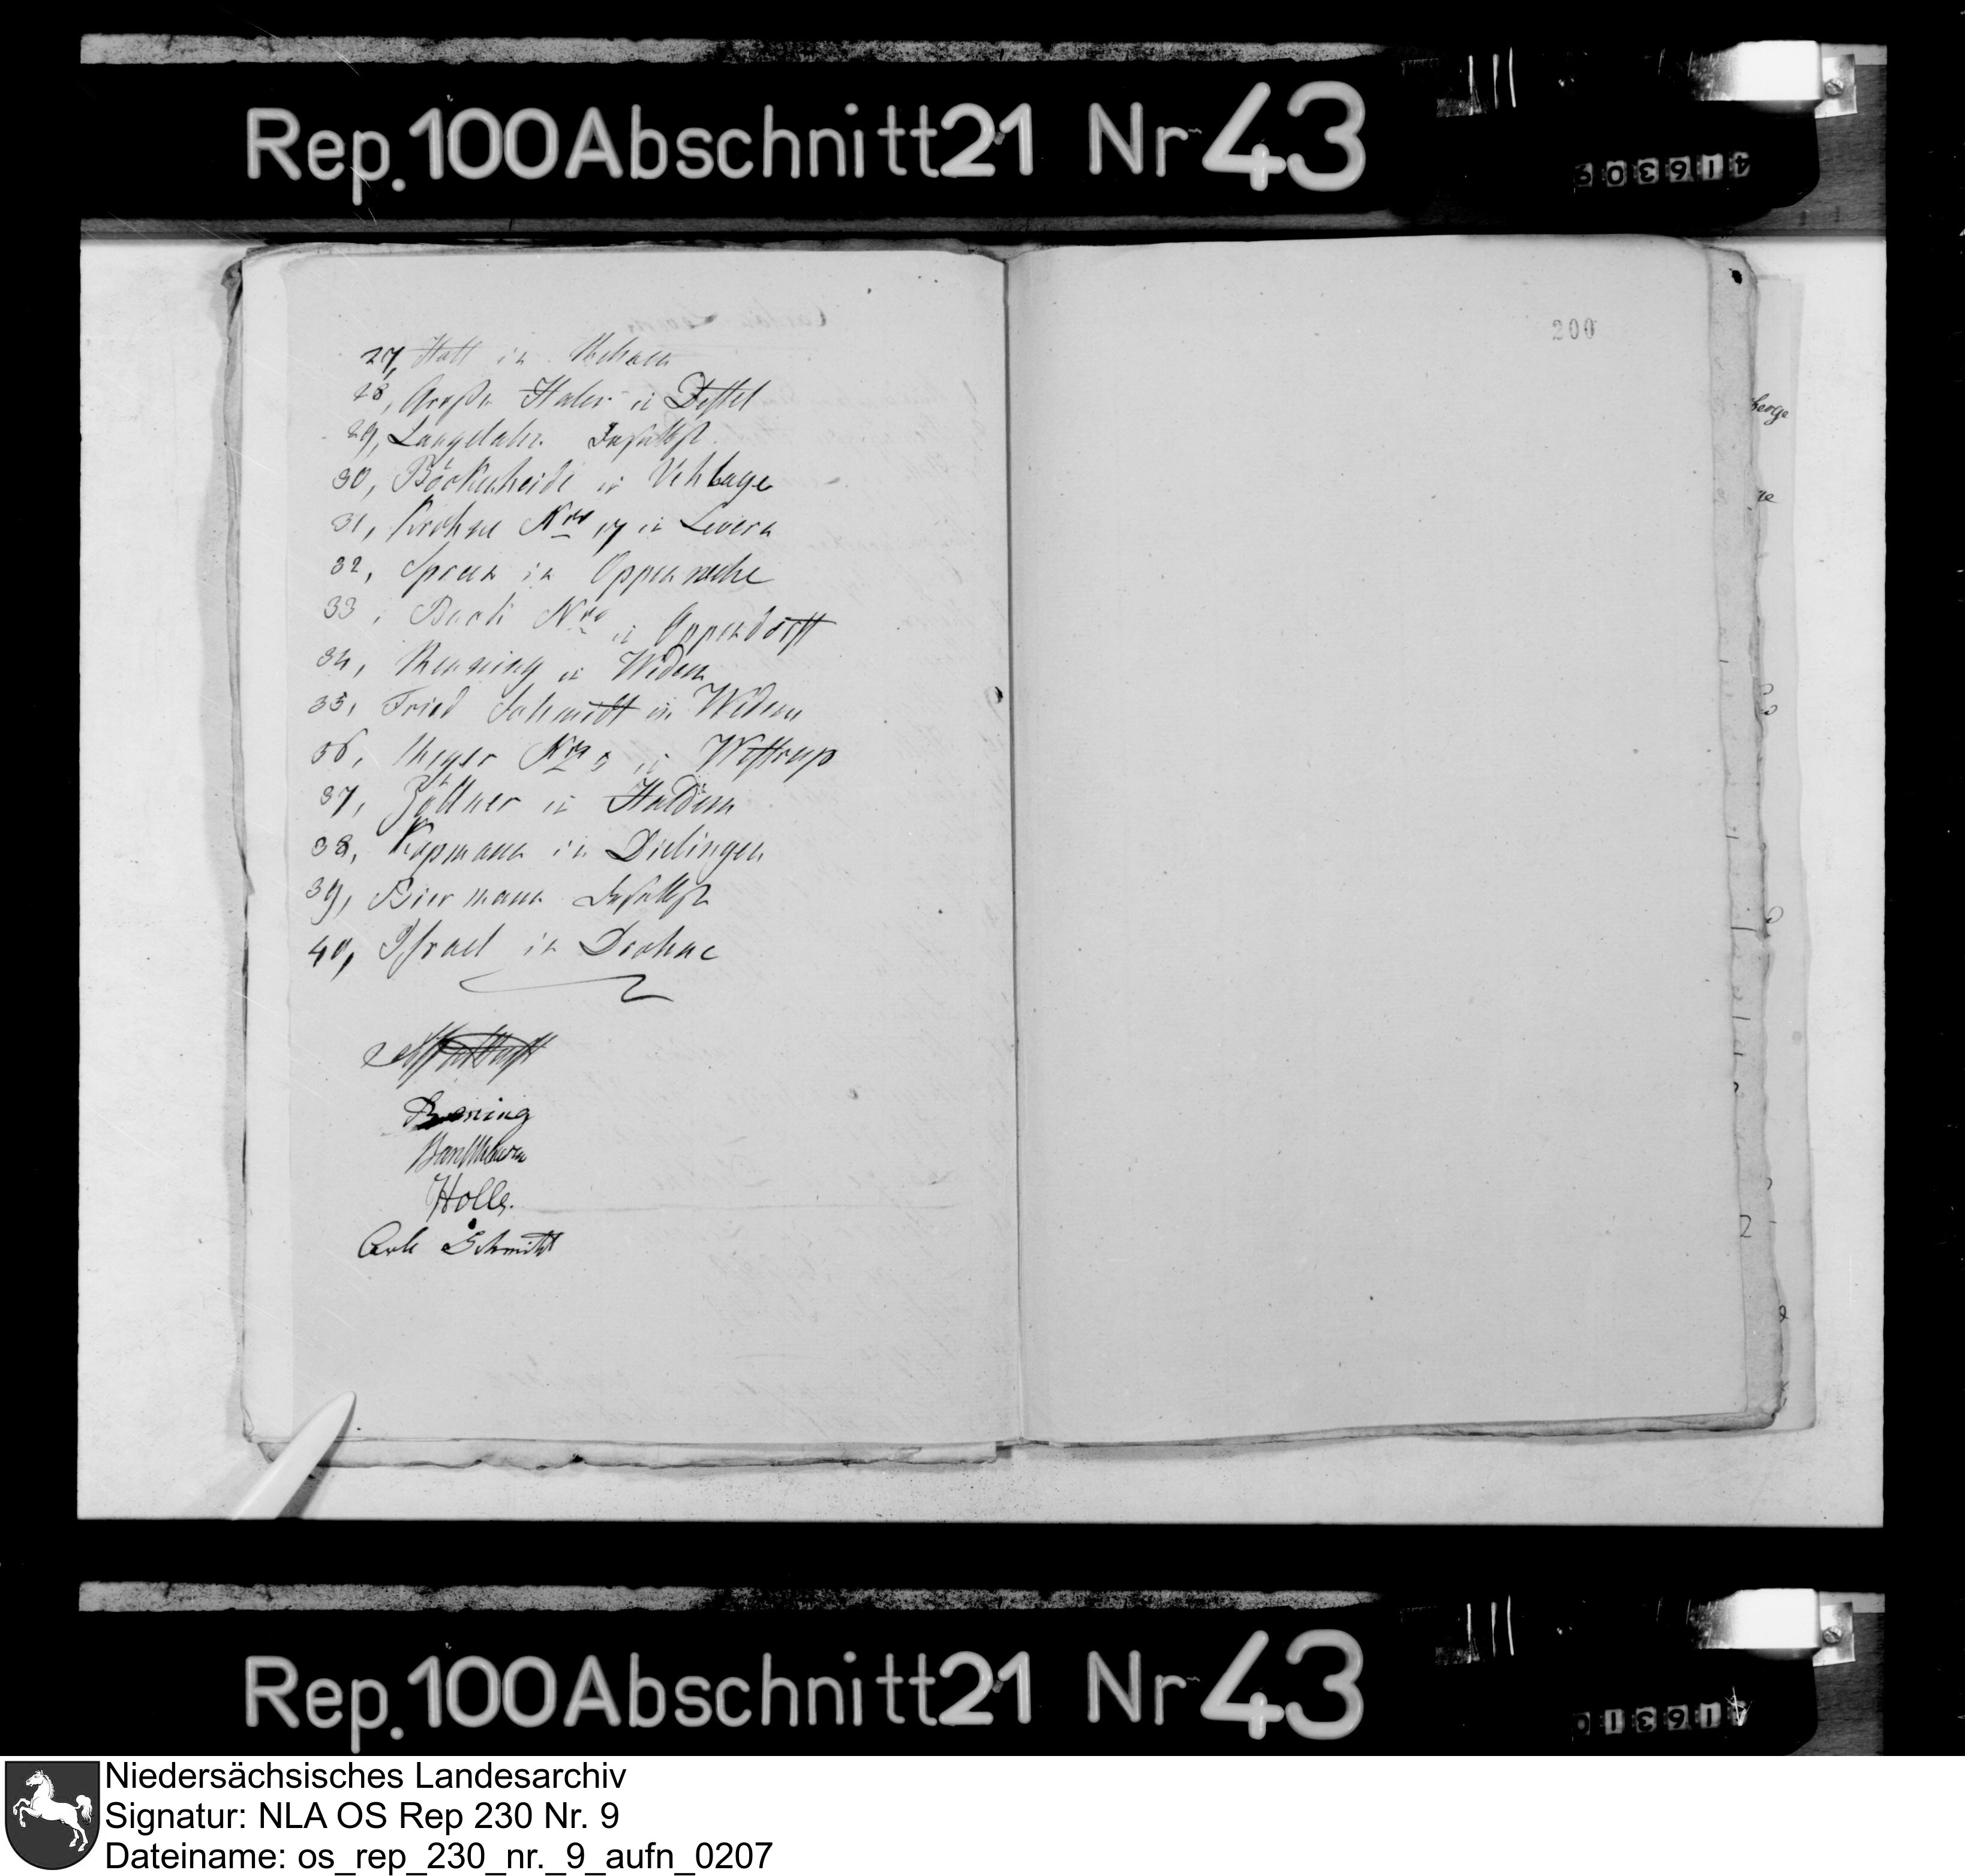 Rep. 100 Abschnitt 21 Nr 43
416309
200
27, Hall in
28, Große Haler in Destel
29, Langelahr Daselbst
30, Böckenheide in Vehlage
31, Krohne Nro 17 in Levern
32, Spreen in Oppenwehe
33, Nro in Oppendorff
34, Henning in Wedem
35, Fried Schmidt in Wedem
36, Meyer Nro 5 in Westrup
37, Zöllner in Haldem
38, Kopmann in Dielingen
39, Biermann Daselbst
40, Israel in Drohne
Boning
Holle.
Carl Schmidt
Rep. 100 Abschnitt 21 Nr 43
416310
Niedersächsisches Landesarchiv
Signatur: NLA OS Rep 230 Nr. 9
Dateiname: os_rep_230_nr._9_aufn_0207